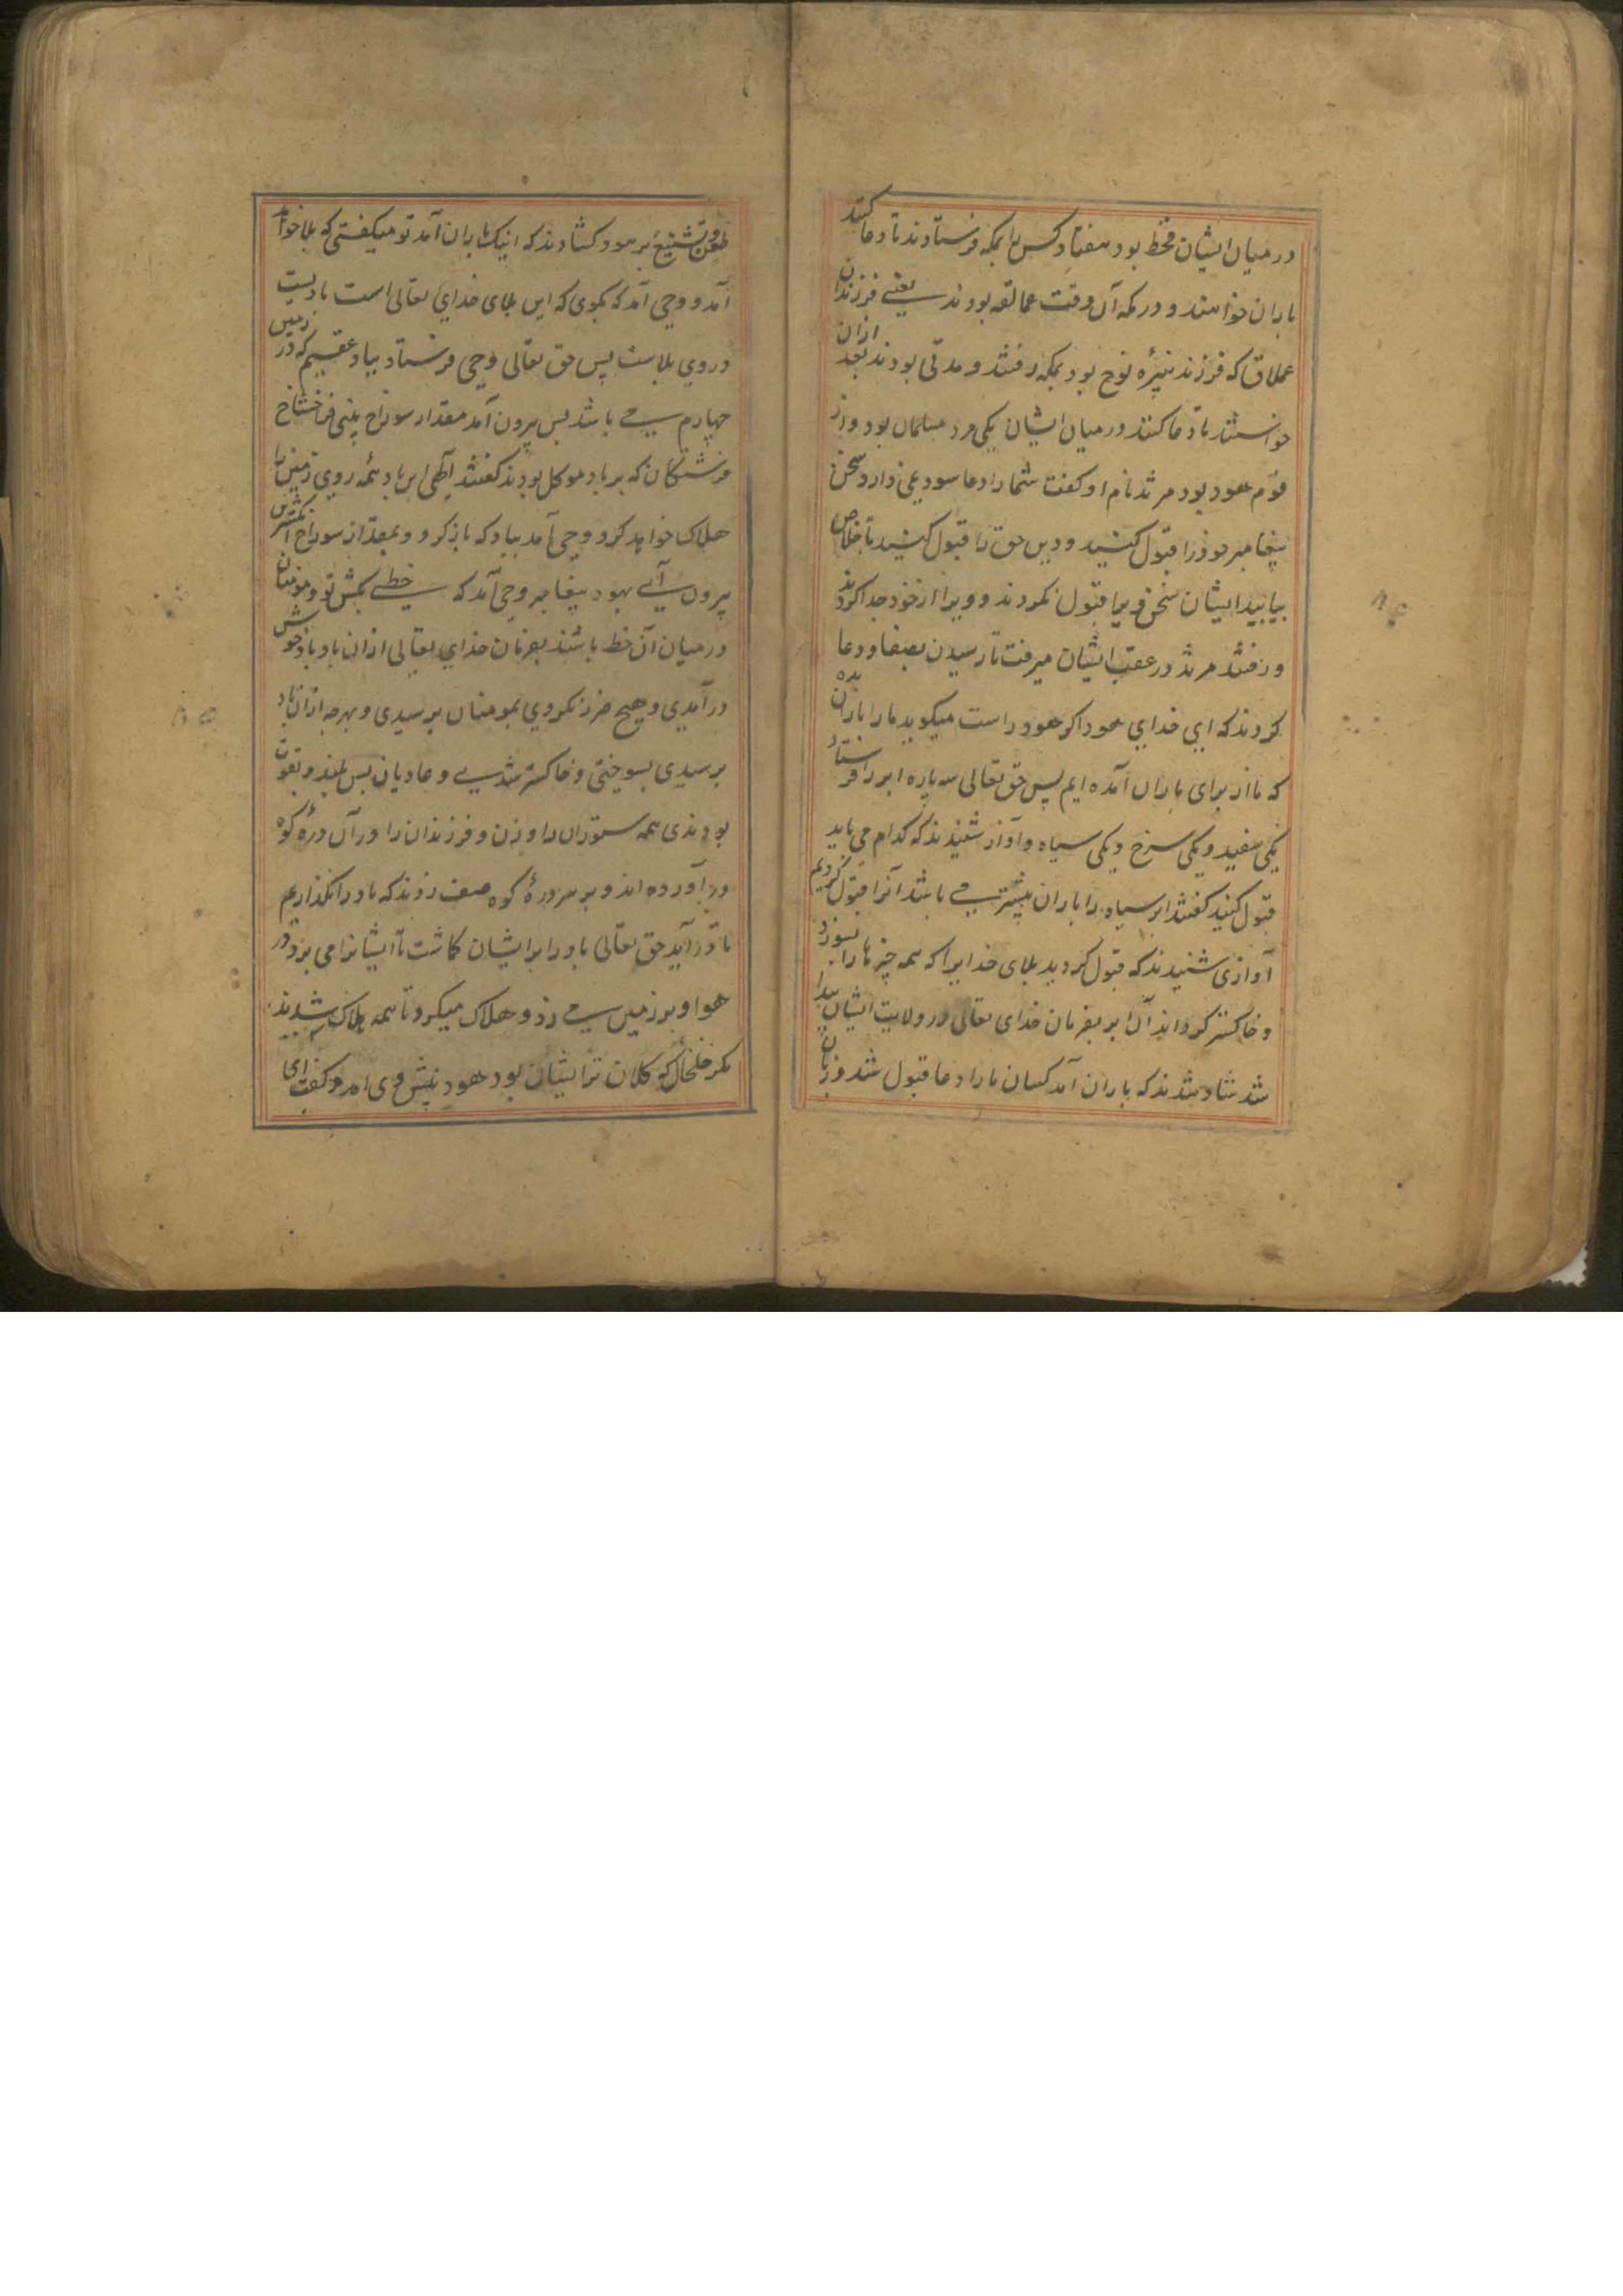 در میان ایشان قحط بود هفتاد کس را بمکه فرستادند تا دعا کنند
باران خواهند و در مکه آن وقت عمالقه بودند یعنے فرزندان
عملاق که فرزند نبیرۀ نوح بود بمکه رفتند و مدتی بودند بعد ازان
خواستند تا دعا کنند در میان ایشان یکی مرد مسلمان بود و از
قوم هود بود مرثد نام او کفت شما را دعا سود نمی دارد سخن
پیغامبر هود را قبول کنید و دین حق را قبول کنید تا خلاص
بیابید ایشان سخن ویرا قبول نکردند و ویرا از خود جدا کردند
و رفتند مرثد در عقب ایشان میرفت تا رسیدن بصفا و دعا
کردند که ای خدای هود اکر هود راست میکوید ما را باران بده
که ما از برای باران آمده ایم پس حق تعالی سه پاره ابر را فرستاد
یکی سفید و یکی سرخ و یکی سیاه و آواز شنیدند که کدام می باید
قبول کنید کفتند ابر سیاه را باران بیشتر مے باشد آنرا قبول کردیم
آوازی شنیدند که قبول کردید بلای خدایرا که همه چیز ها را بسوزد
و خاکستر کرداند آن ابر بفرمان خدای تعالی در ولایت ایشان پیدا
شد شاد شدند که باران آمد کسان ما را دعا قبول شد و زبان
طعن و تشنیع بر هود کشادند که اینک باران آمد تو میکفتی که بلا خواهد
آمد و وحی آمد که بکوی که این بلای خدای تعالی است بادیست
در وی بلاست پس حق تعالی وحی فرستاد بباد عقیم که در زمین
چهارم مے باشد پس بیرون آمد مقدار سوراخ بینی فراخ شاخ
فرشتکان که بر باد موکل بودند کفتند الهی این باد همه روی زمین را
هلاک خواهد کرد و وحی آمد بباد که باز کرد و بمقدار سوراخ انکشترین
بیرون آے بهود پیغامبر وحی آمد که خطے بکش تو و مومنان
در میان آن خط باشند بفرمان خدای تعالی ازان باد باد خوش
در آمدی و هیچ ضرر نکردی بمومنان برسیدی و بهرچه ازان باد
برسیدی بسوختی و خاکستر شدے و عادیان بس بلند و بقوت
بودندی همه ستوران را و زن و فرزندان را در آن درۀ کوه
در آورده اند و بر سر درۀ کوه صف زدند که باد را نکذاریم
تا در آید حق تعالی باد را بر ایشان کماشت تا ایشانرا می برد در
هوا و بر زمین مے زد و هلاک میکرد تا همه هلاک شدند
مکر خلخال کو کلان تر ایشان بود هود پیش وی آمد و کفت ای